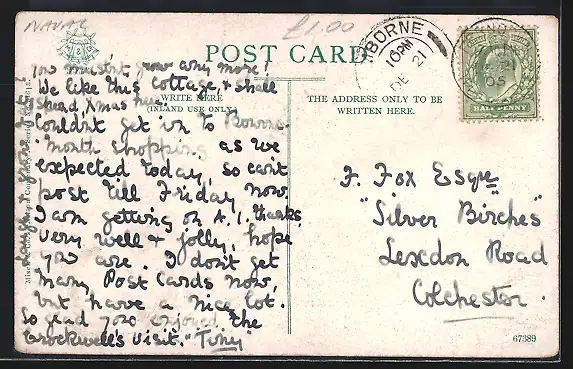 NAVAL
£1.00
POST CARD
WRITE HERE
(INLAND USE ONLY)
THE ADDRESS ONLY TO BE
WRITTEN HERE.
you mustn't grow any more!
We like this Cottage, & shall
spend Xmas here.
Couldn't get in to Bourne-
mouth shopping as we
expected today, so can't
post till Friday now.
I am getting on A.1. thanks,
very well & jolly, hope
you are. I don't get
many Post Cards now,
but have a nice lot.
So glad you enjoyed the
Crockwell's visit." Tiny
F. Fox Esqre
"Silver Birches"
Lexdon Road
Colchester.
BORNE
10 PM
DE 21
05
HALF PENNY
67389